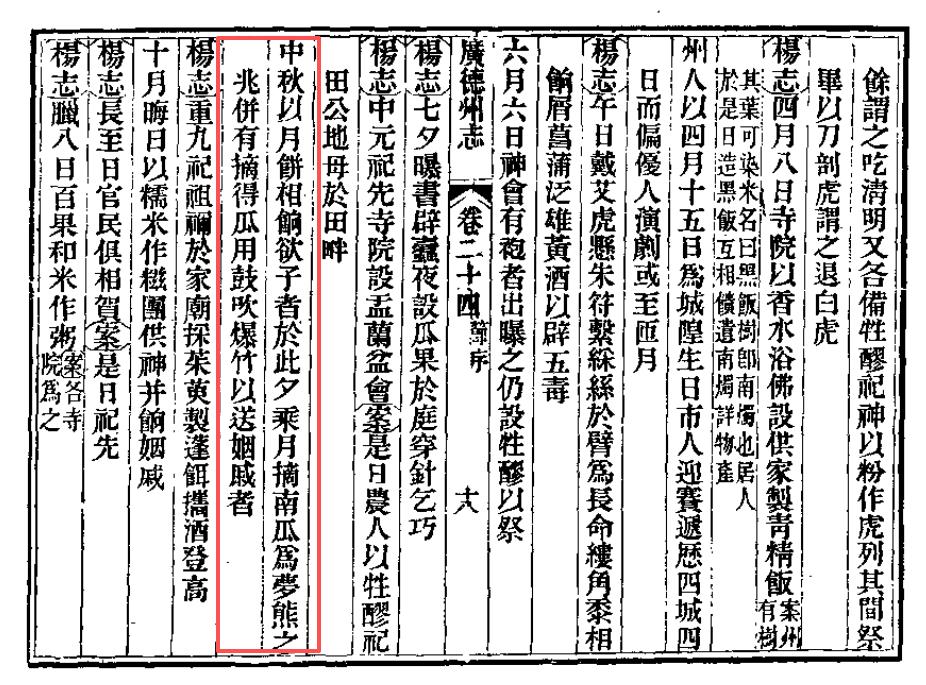 餘謂之吃淸明又各備牲醪祀神以粉作虎列其間祭
畢以刀剖虎謂之退白虎
楊志四月八日寺院以香水浴佛設供家製靑精飯案州有樹
其葉可染米名曰黑飯樹卽南燭也居人
於是日造黑飯互相饋遺南燭詳物產
州人以四月十五日爲城隍生日市人迎賽遞歷四城四
日而偏優人演劇或至匝月
楊志午日戴艾虎懸朱符繫綵絲於臂爲長命縷角黍相
餉屑菖蒲泛雄黃酒以辟五毒
六月六日神會有袍者出曝之仍設牲醪以祭
廣德州志
卷二十四
十八
楊志七夕曝書辟蠹夜設瓜果於庭穿針乞巧
楊志中元祀先寺院設盂蘭盆會案是日農人以牲醪祀
田公地母於田畔
中秋以月餅相餉欲子者於此夕乘月摘南瓜爲夢熊之
兆併有摘得瓜用鼓吹爆竹以送姻戚者
楊志重九祀祖禰於家廟採茱萸製蓬餌攜酒登高
十月晦日以糯米作糍團供神并餉姻戚
楊志長至日官民俱相賀案是日祀先
楊志臘八日百果和米作粥案各寺院爲之